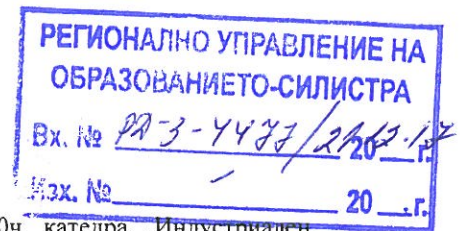 РЕГИОНАЛНО УПРАВЛЕНИЕ НА
ОБРАЗОВАНИЕТО-СИЛИСТРА
Вх. № РД-3-4477/27.12.17 20__г.
Изх. № 20__г.
катедра Индустриален